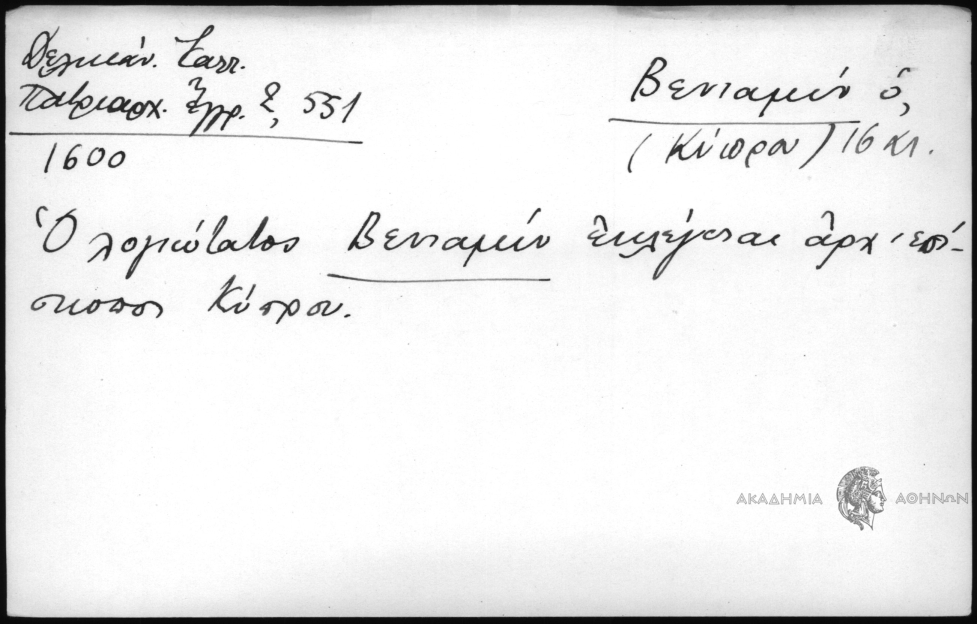 Δελικάν. Καλλ.
Πατριαρχ. Ἔγγρ. 2, 551
1600
Βενιαμὶν ὁ,
(Κύπρου) 16 αἰ.
Ὁ λογιώτατος Βενιαμὶν ἐκλέγεται ἀρχιεπί-
σκοπος Κύπρου.
ΑΚΑΔΗΜΙΑ ΑΘΗΝΩΝ